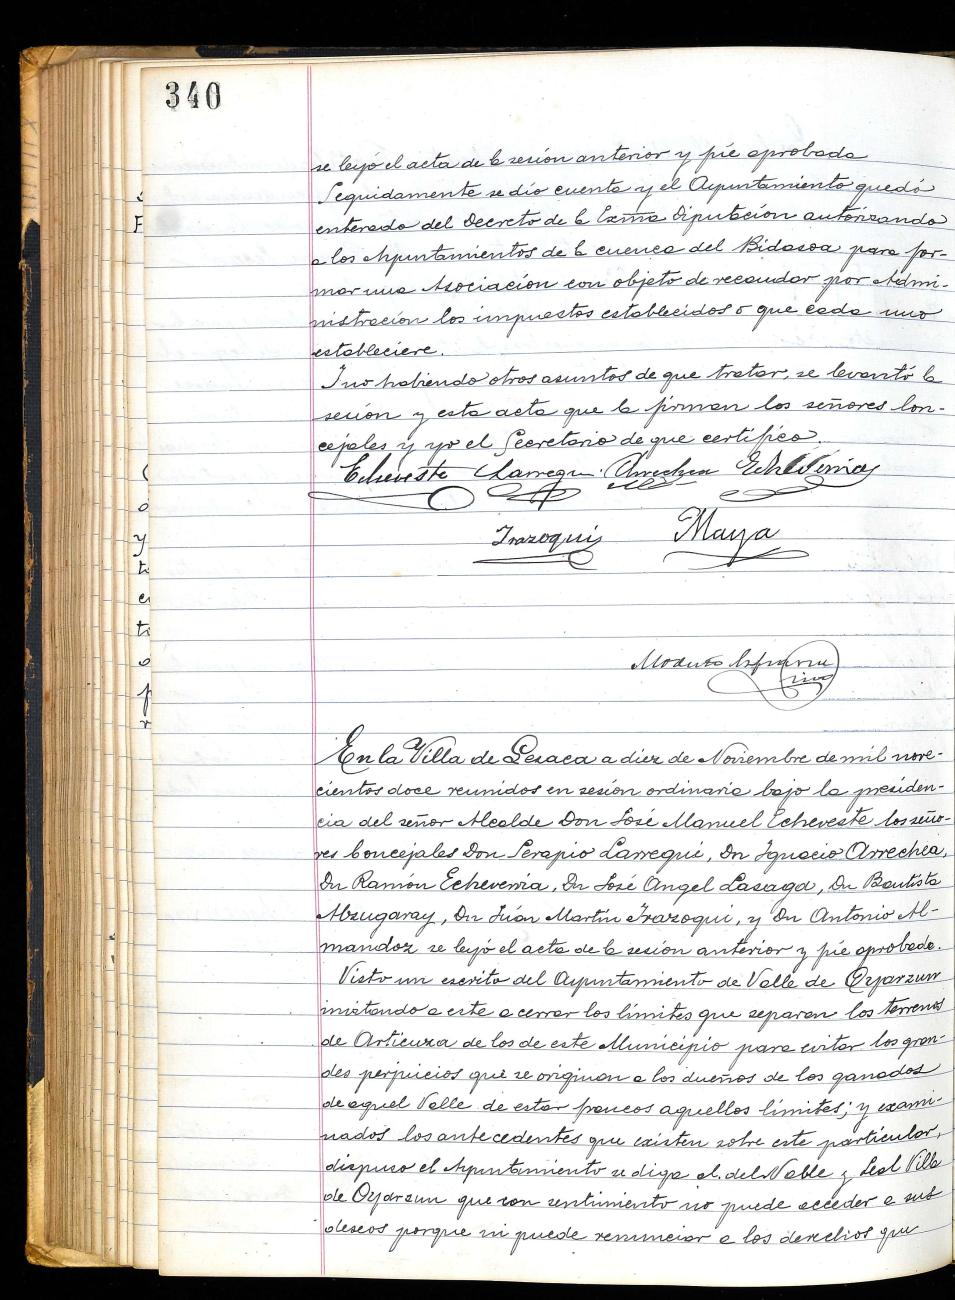 340
se leyó el acta de la sesión anterior y fué aprobada
Seguidamente se dió cuenta y el Ayuntamiento quedó
enterado del Decreto de la Exma Diputación autorizando
a los Ayuntamientos de la cuenca del Bidasoa para for-
mar una Asociación con objeto de recaudar por Admi-
nistración los impuestos establecidos o que cada uno
estableciere.
Y no habiendo otros asuntos de que tratar, se levantó la
sesión y esta acta que la firman los señores Con-
cejales y yo el Secretario de que certifico.
Echeveste Larregui Arrechea Echeverria
Irazoqui Maya
Modesto
En la Villa de Lesaca a diez de Noviembre de mil nove-
cientos doce reunidos en sesión ordinaria bajo la presiden-
cia del señor Alcalde Don José Manuel Echeveste los seño-
res Concejales Don Serapio Larregui, Dn Ignacio Arrechea,
Dn Ramón Echeverria, Dn José Angel Lasaga, Dn Bautista
Alzugaray, Dn Juán Martín Irazoqui, y Dn Antonio Al-
mandoz se leyó el acta de la sesión anterior y fué aprobada.
Visto un escrito del Ayuntamiento de Valle de Oyarzun
instando a este a cerrar los límites que separan los terrenos
de Articuza de los de este Municipio para evitar los gran-
des perjuicios que se originan a los dueños de los ganados
de aquel Valle de estar francos aquellos límites; y exami-
nados los antecedentes que existen sobre este particular,
dispuso el Ayuntamiento se diga al del Noble y Leal Villa
de Oyarzun que con sentimiento no puede acceder a sus
deseos porque ni puede renunciar a los derechos que